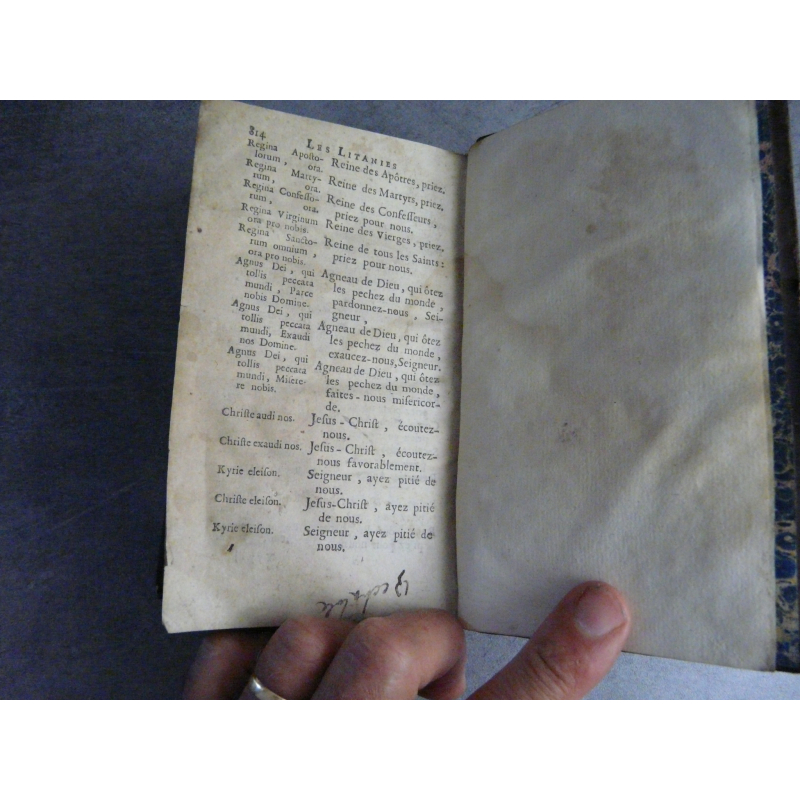 814
LES LITANIES
Regina Aposto-
lorum, ora.
Regina Marty-
rum, ora.
Regina Confesso-
rum, ora.
Regina Virginum
ora pro nobis.
Regina Sancto-
rum omnium,
ora pro nobis.
Agnus Dei, qui
tollis peccata
mundi, Parce
nobis Domine.
Agnus Dei, qui
tollis peccata
mundi, Exaudi
nos Domine.
Agnus Dei, qui
tollis peccata
mundi, Misere-
re nobis.
Christe audi nos.
Christe exaudi nos.
Kyrie eleison.
Christe eleison.
Kyrie eleison.
Reine des Apôtres, priez.
Reine des Martyrs, priez.
Reine des Confesseurs,
priez pour nous.
Reine des Vierges, priez.
Reine de tous les Saints:
priez pour nous.
Agneau de Dieu, qui ôtez
les pechez du monde,
pardonnez-nous, Sei-
gneur,
Agneau de Dieu, qui ôtez
les pechez du monde,
exaucez-nous, Seigneur.
Agneau de Dieu, qui ôtez
les pechez du monde,
faites-nous misericor-
de.
Jesus-Christ, écoutez-
nous.
Jesus-Christ, écoutez-
nous favorablement.
Seigneur, ayez pitié de
nous.
Jesus-Christ, ayez pitié
de nous.
Seigneur, ayez pitié de
nous.